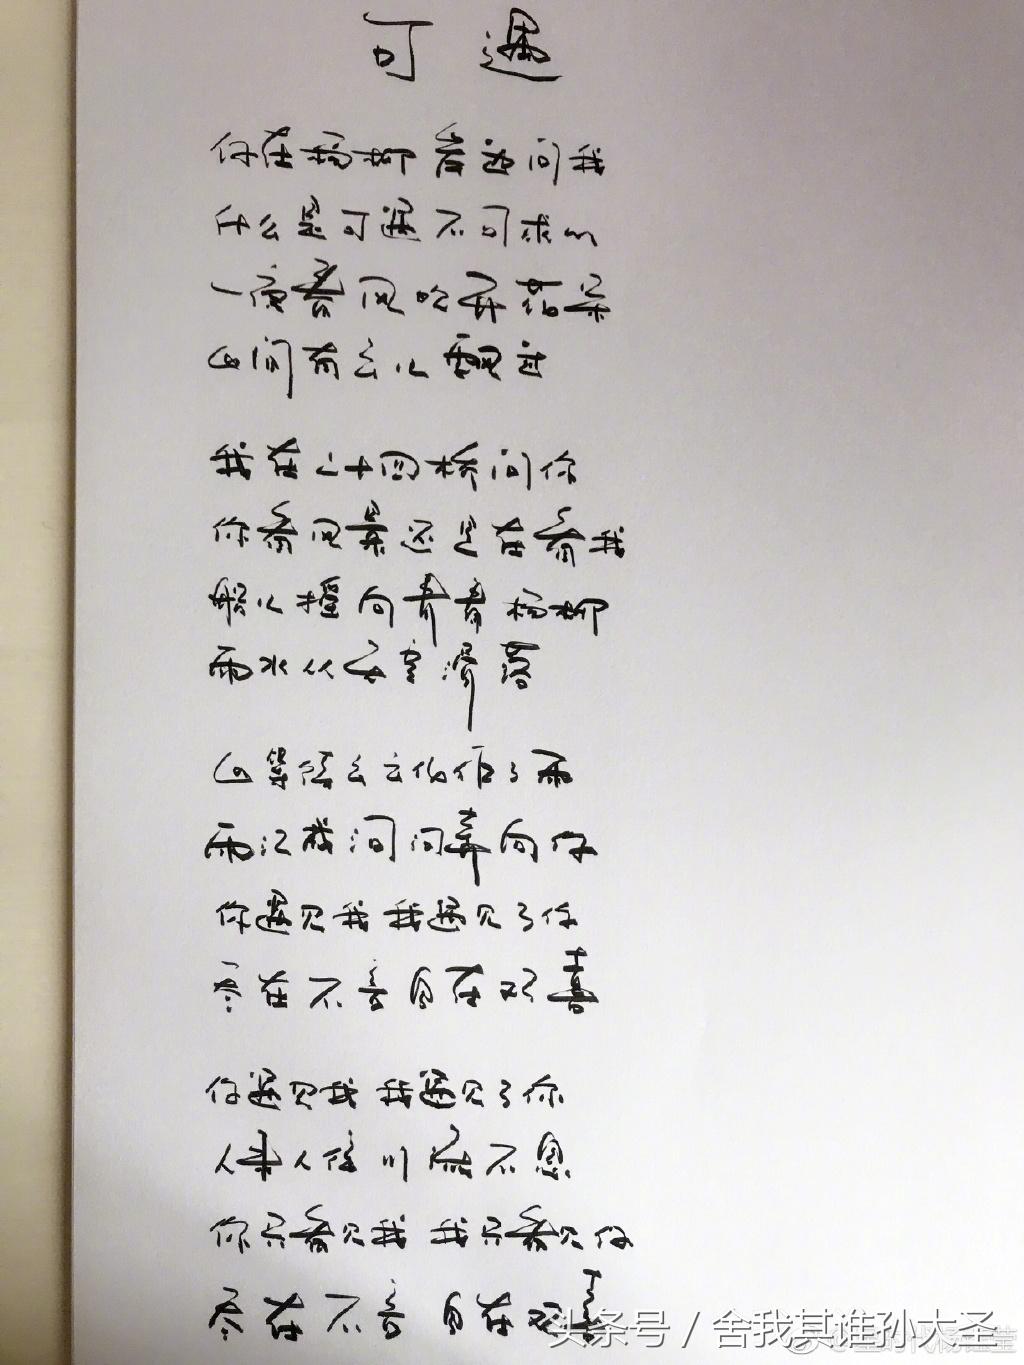 可遇
你在杨柳岸边问我
什么是可遇不可求的
一夜春风吹开花朵
山间有云儿飘过
我在二十四桥问你
你看风景还是在看我
船儿摇向青青杨柳
雨水从天空滑落
山等待云 云伪作了雨
雨江 问奔向你
你遇见我 我遇见了你
尽在不言 自在欢喜
你遇见我 我遇见了你
人来人往川流不息
你只看见我 我只看见你
尽在不言 自在欢喜
头条号 / 舍我其谁孙大圣